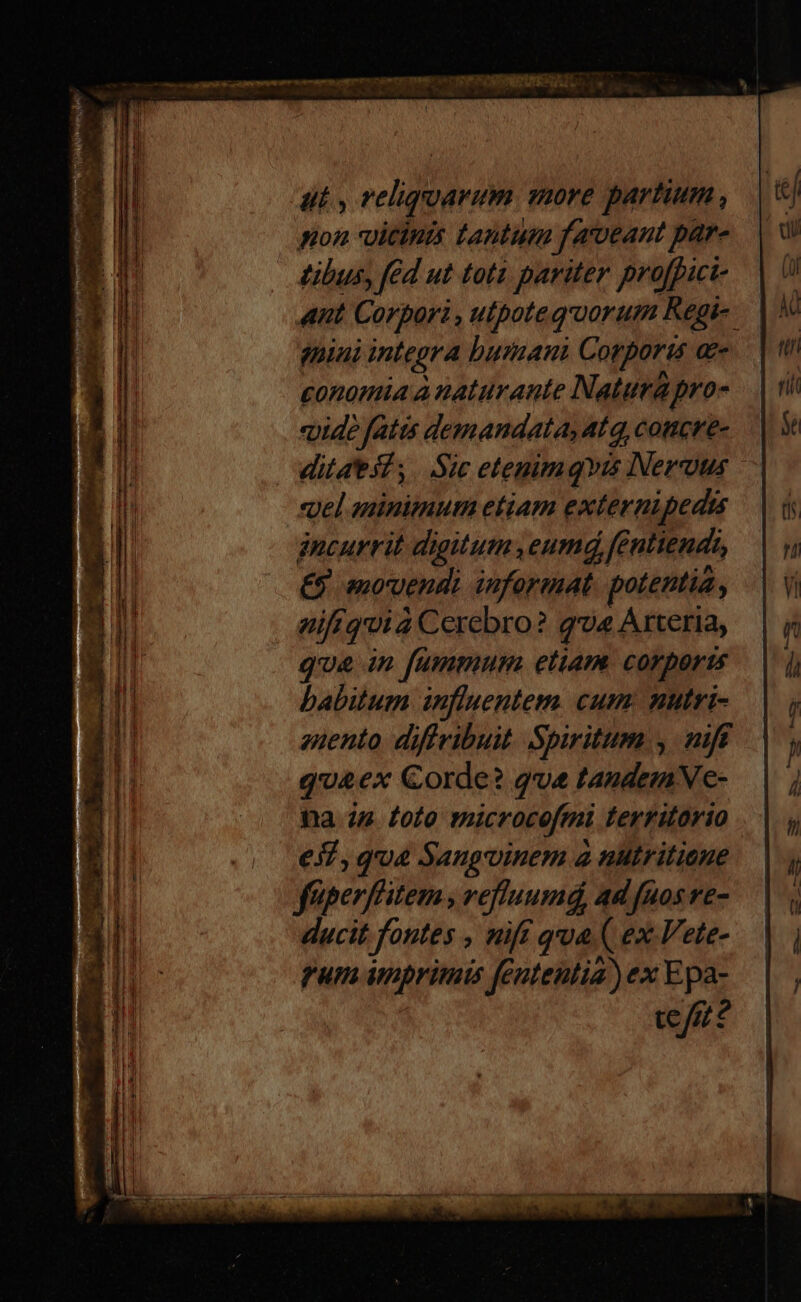 ut, reliqvarum more partium,
non vicinis tantum faveant par-
tibus, ſed ut toti pariter proſpici-
ant Corpori, utpote qvorum Regi-
mini integra humani Corporis œ-
conomia à naturante Naturâ pro-
vidè ſatis demandata, atq; concre-
dita est; Sic etenim qvis Nervus
vel minimum etiam externi pedis
incurrit digitum, eumq; ſentiendi,
& movendi informat potentiâ,
niſi qvi à Cerebro? qvæ Arteria,
qvæ in ſummum etiam corporis
habitum influentem cum nutri-
mento diſtribuit Spiritum, niſi
qvæ ex Corde? qvæ tandem Ve-
na in toto microcoſmi territorio
est, qvæ Sangvinem à nutritione
ſuperſtitem, refluumq; ad ſuos re-
ducit fontes, niſi qvæ (ex Vete-
rum imprimis ſententiâ) ex Epa-
te ſit?